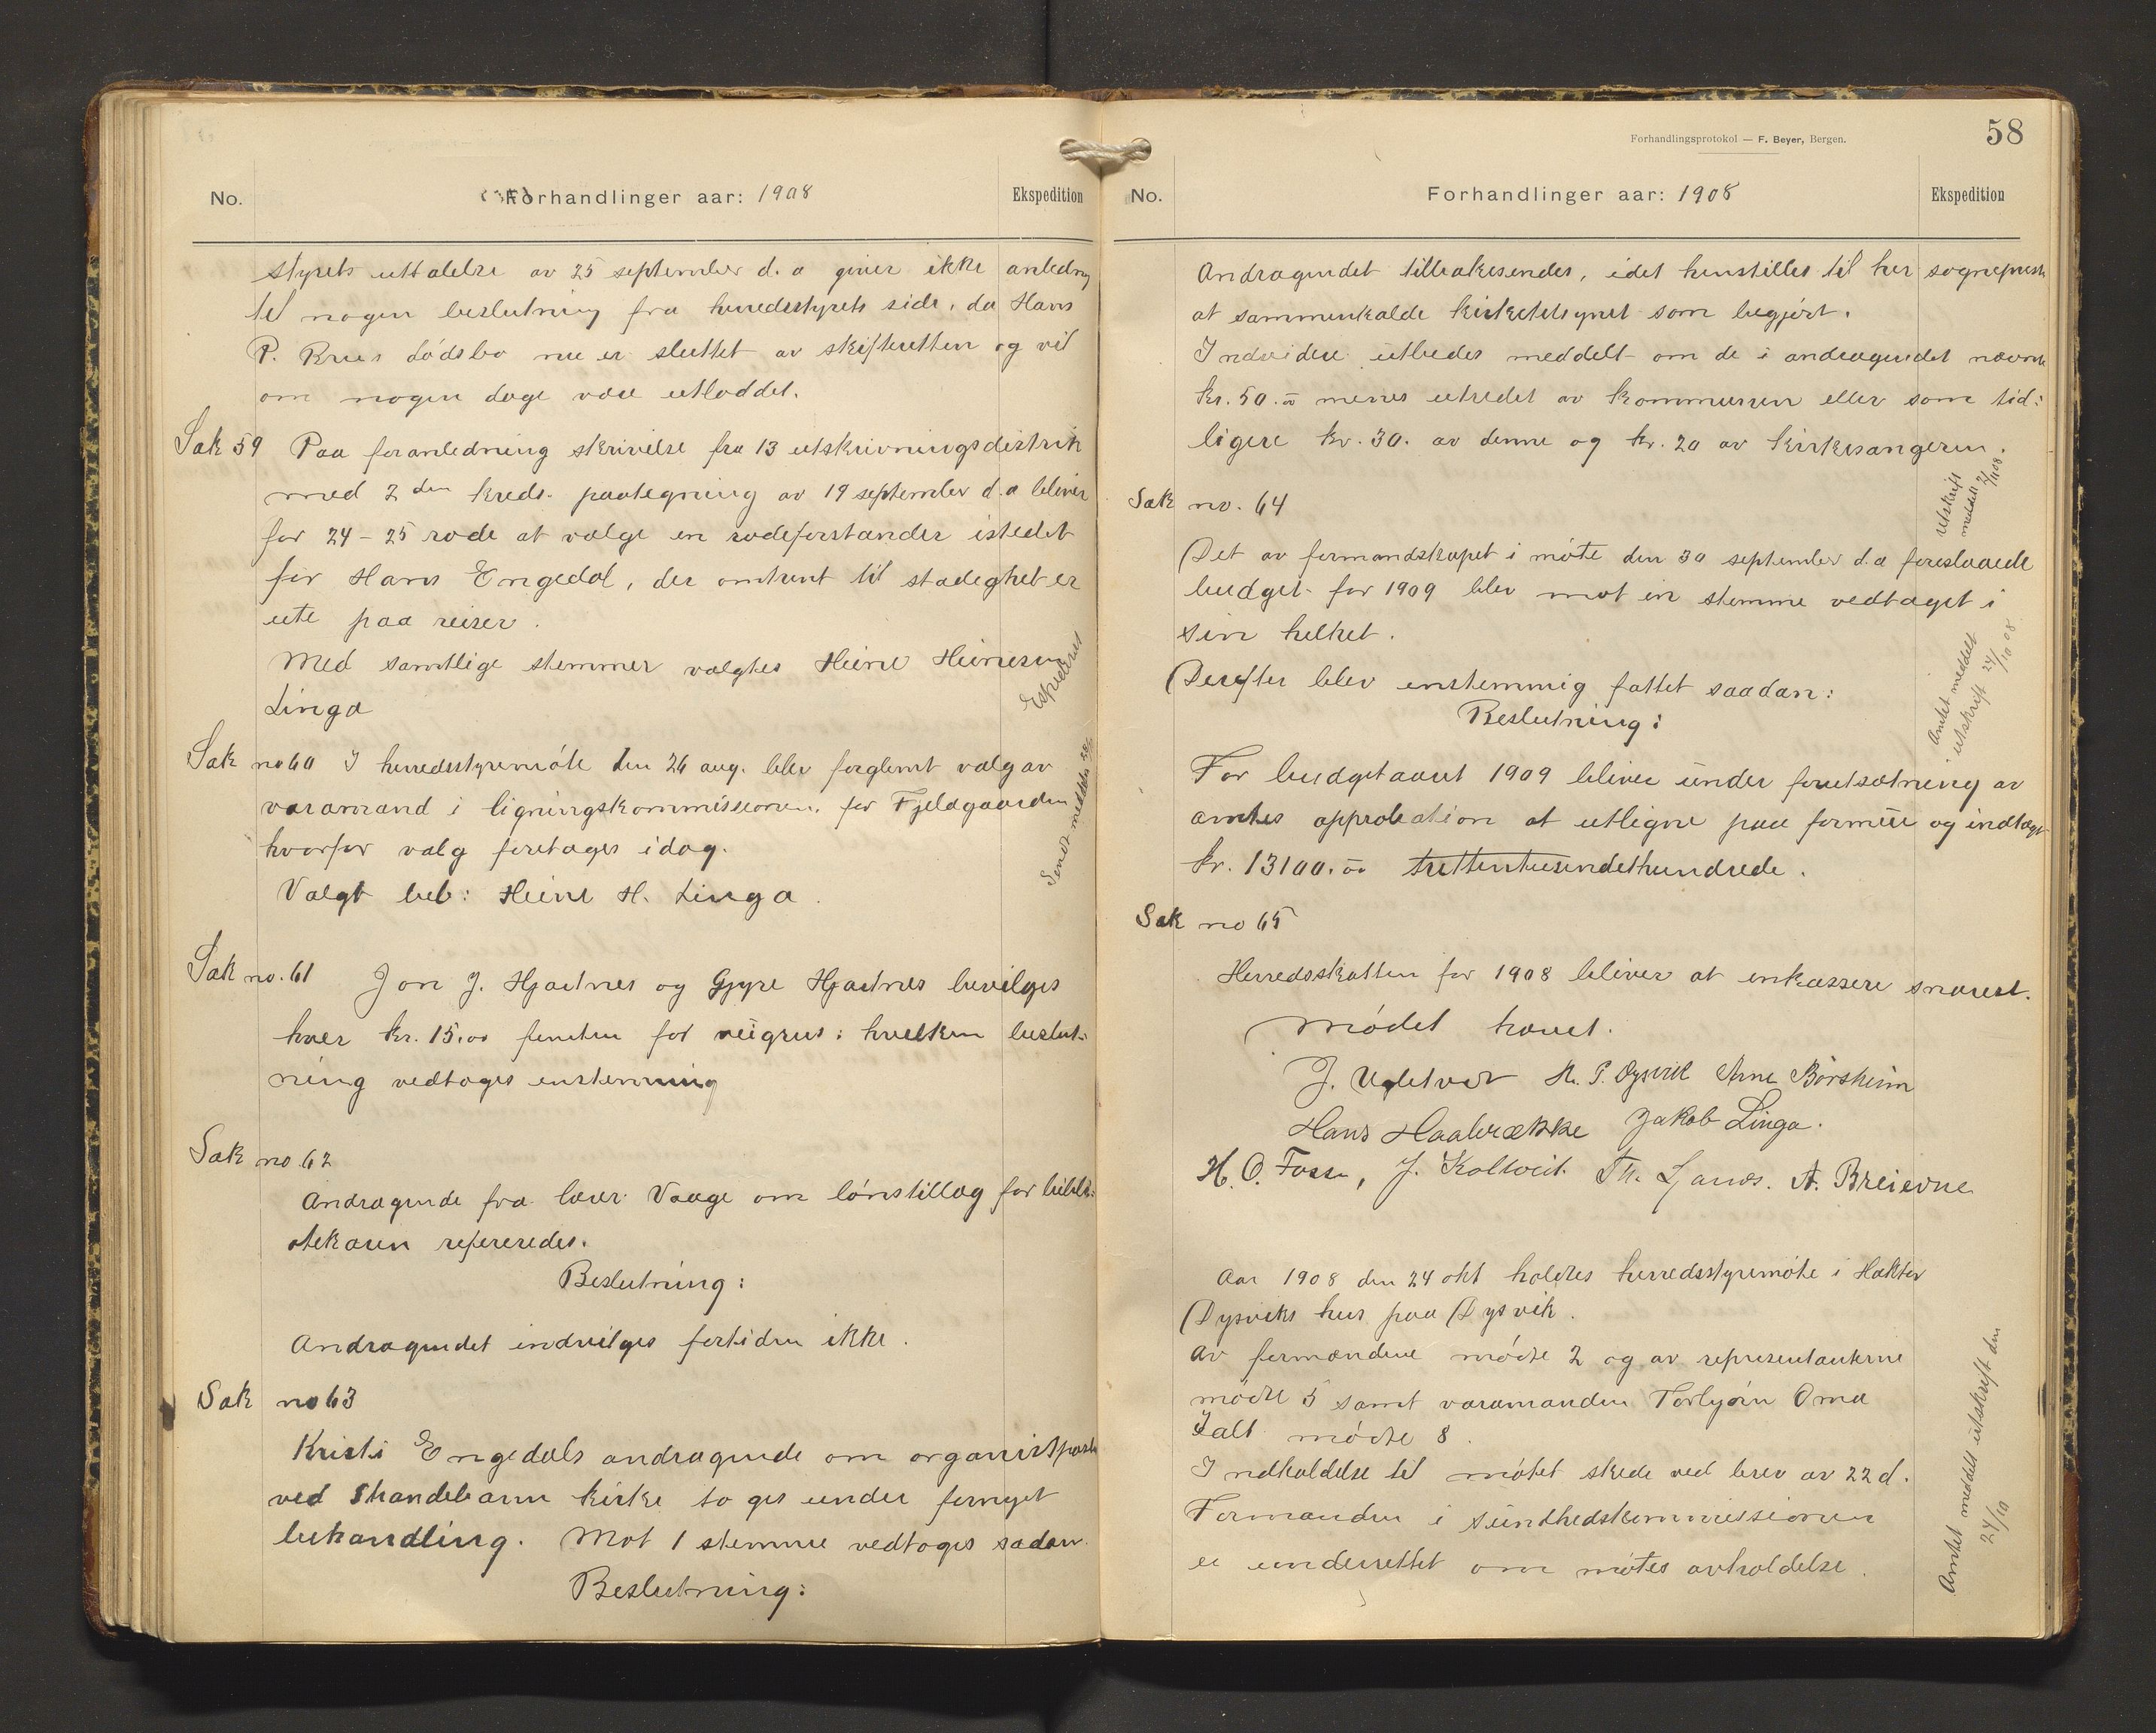 No.
Forhandlinger aar: 1908
Ekspedition
styrets uttalelse av 25 september d. a giver ikke anledng
til nogen beslutning fra herredsstyrets side, da Hans
P. Krues dødsbo nu er sluttet av skifteretten og vil
om nogen dage være utloddet.
Sak 59 Paa foranledning skrivelse fra 13 utskrivningsdistrik
med 2den kreds. paategning av 19 september d.a bliver
for 24-25 rode at vælge en rodeforstander istedet
for Hans Engedal, der omtrent til stadeghet er
ute paa reiser.
Med samtlige stemmer valgtes Heine Heinesen
Linga
Ekspederet
Sak no 60 I herredsstyremøte den 26 aug. blev forglemt valg av
varamand i ligningskommissionen. for Fjeldgaarden
hvorfor valg foretages idag.
Valgt bleb: Heine H. Linga.
Sendt meddelse
Sak no. 61 Jon J. Hjartnes og Gyre Hjartnes bevilges
hver kr. 15.00 femten for veigrus: hvilken beslut:
ning vedtoges enstemmig
Sak no 62
Andragende fra lærer Vaage om lønstillæg for bibli:
otekaren refereredes.
Beslutning:
Andragendet indvilges fortiden ikke.
Sak no 63
Kristi Engedals andragende om organistpost
ved Strandebarm kirke to ges under fornyet
behandling. Mot 1 stemme vedtoges sadan
Beslutning:
Forhandlingsprotokol — F. Beyer, Bergen.
58
No.
Forhandlinger aar: 1908
Ekspedition
Andragendet tilbakesendes, idet henstilles til her sogneprest
at sammenkalde kirketilsynet som begjært.
Indvidere utbedes meddelt om de i andragendet nævnte
kr. 50.00 menes utredet av kommunen eller som tid:
ligere kr. 30. av denne og kr. 20 av kirkesangeren.
Sak no. 64
utskrift
meddelt 2/11 08
Det av formandskapet i møte den 30 september d.a foreslaaede
budget for 1909 blev mot en stemme vedtaget i
sin helhet.
Derefter blev enstemmig fattet saadan:
Beslutning:
Amtet meddelt
utskrift 24/10 08
For budgetaaret 1909 bliver under forutsætning av
amtes approbation at utligne paa formue og indtægt
kr. 13100.00 trettentusendethundrede.
Sak no 65
Herredsskatten for 1908 bliver at inkassere snarest.
Mødet hævet.
J. Ugletveit H. P. Dysvik Arne Børsheim
Hans Haabrække Jakob Linga.
H. O. Fosse, J. Koltveit. Th. Ljones. A. Breievne
Aar 1908 den 24 okt holdtes herredsstyremøte i Haktor
Dysviks hus paa Dysvik.
Av formændene mødte 2 og av representanterne
mødte 5 samt varamanden Torbjørn Oma
Ialt mødte 8.
Indkaldelse til møtet skede ved brev av 22 d.
Formanden i sundhedskommissionen
er underrettet om møtes avholdelse.
Amtet meddelt utskrift den
24/10